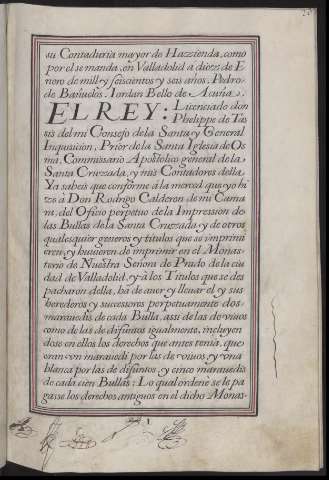 su Contaduria mayor de Hazzienda, como
por el se manda, en Valladolid a diez de E
nero de mill y seiscientos y seis años. Pedro
de Bañuelos. Iordan Bello de Acuña.
EL REY: Licenciado don
Phelippe de Tas
sis del mi Consejo de la Santa y General
Inquisicion, Prior de la Santa Yglesia de Os
ma, Commissario Apostolico general de la
Santa Cruzada, y mis Contadores della
Ya sabeis que conforme a la merced que yo hi
ze à Don Rodrigo Calderon de mi Cama
ra, del Oficio perpetuo de la Impression de
las Bullas de la Santa Cruzada, y de otros
qualesquier generos y titulos que se imprimi
eren, y huvieren de imprimir en el Monas-
terio de Nuestra Señora de Prado de la ciu
dad de Valladolid, y a los Titulos que se des
pacharon della, ha de aver y llevar el y sus
herederos y successores perpetuamente dos
maravedis de cada Bulla, assi de las de vivos
como de las de difuntos igualmente, incluyen
dose en ellos los derechos que antes tenia, que
eran un maravedi por las de vivos, y una
blanca por las de difuntos, y cinco maravedis
de cada cien Bullas: Lo qual ordenè se le pa
gasse los derechos antiguos en el dicho Monas-